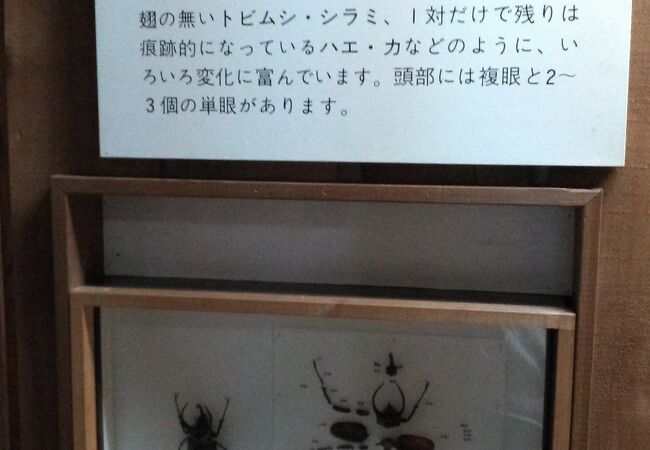 翅の無いトビムシ・シラミ、1対だけで残りは
痕跡的になっているハエ・カなどのように、い
ろいろ変化に富んでいます。頭部には複眼と2〜
3個の単眼があります。